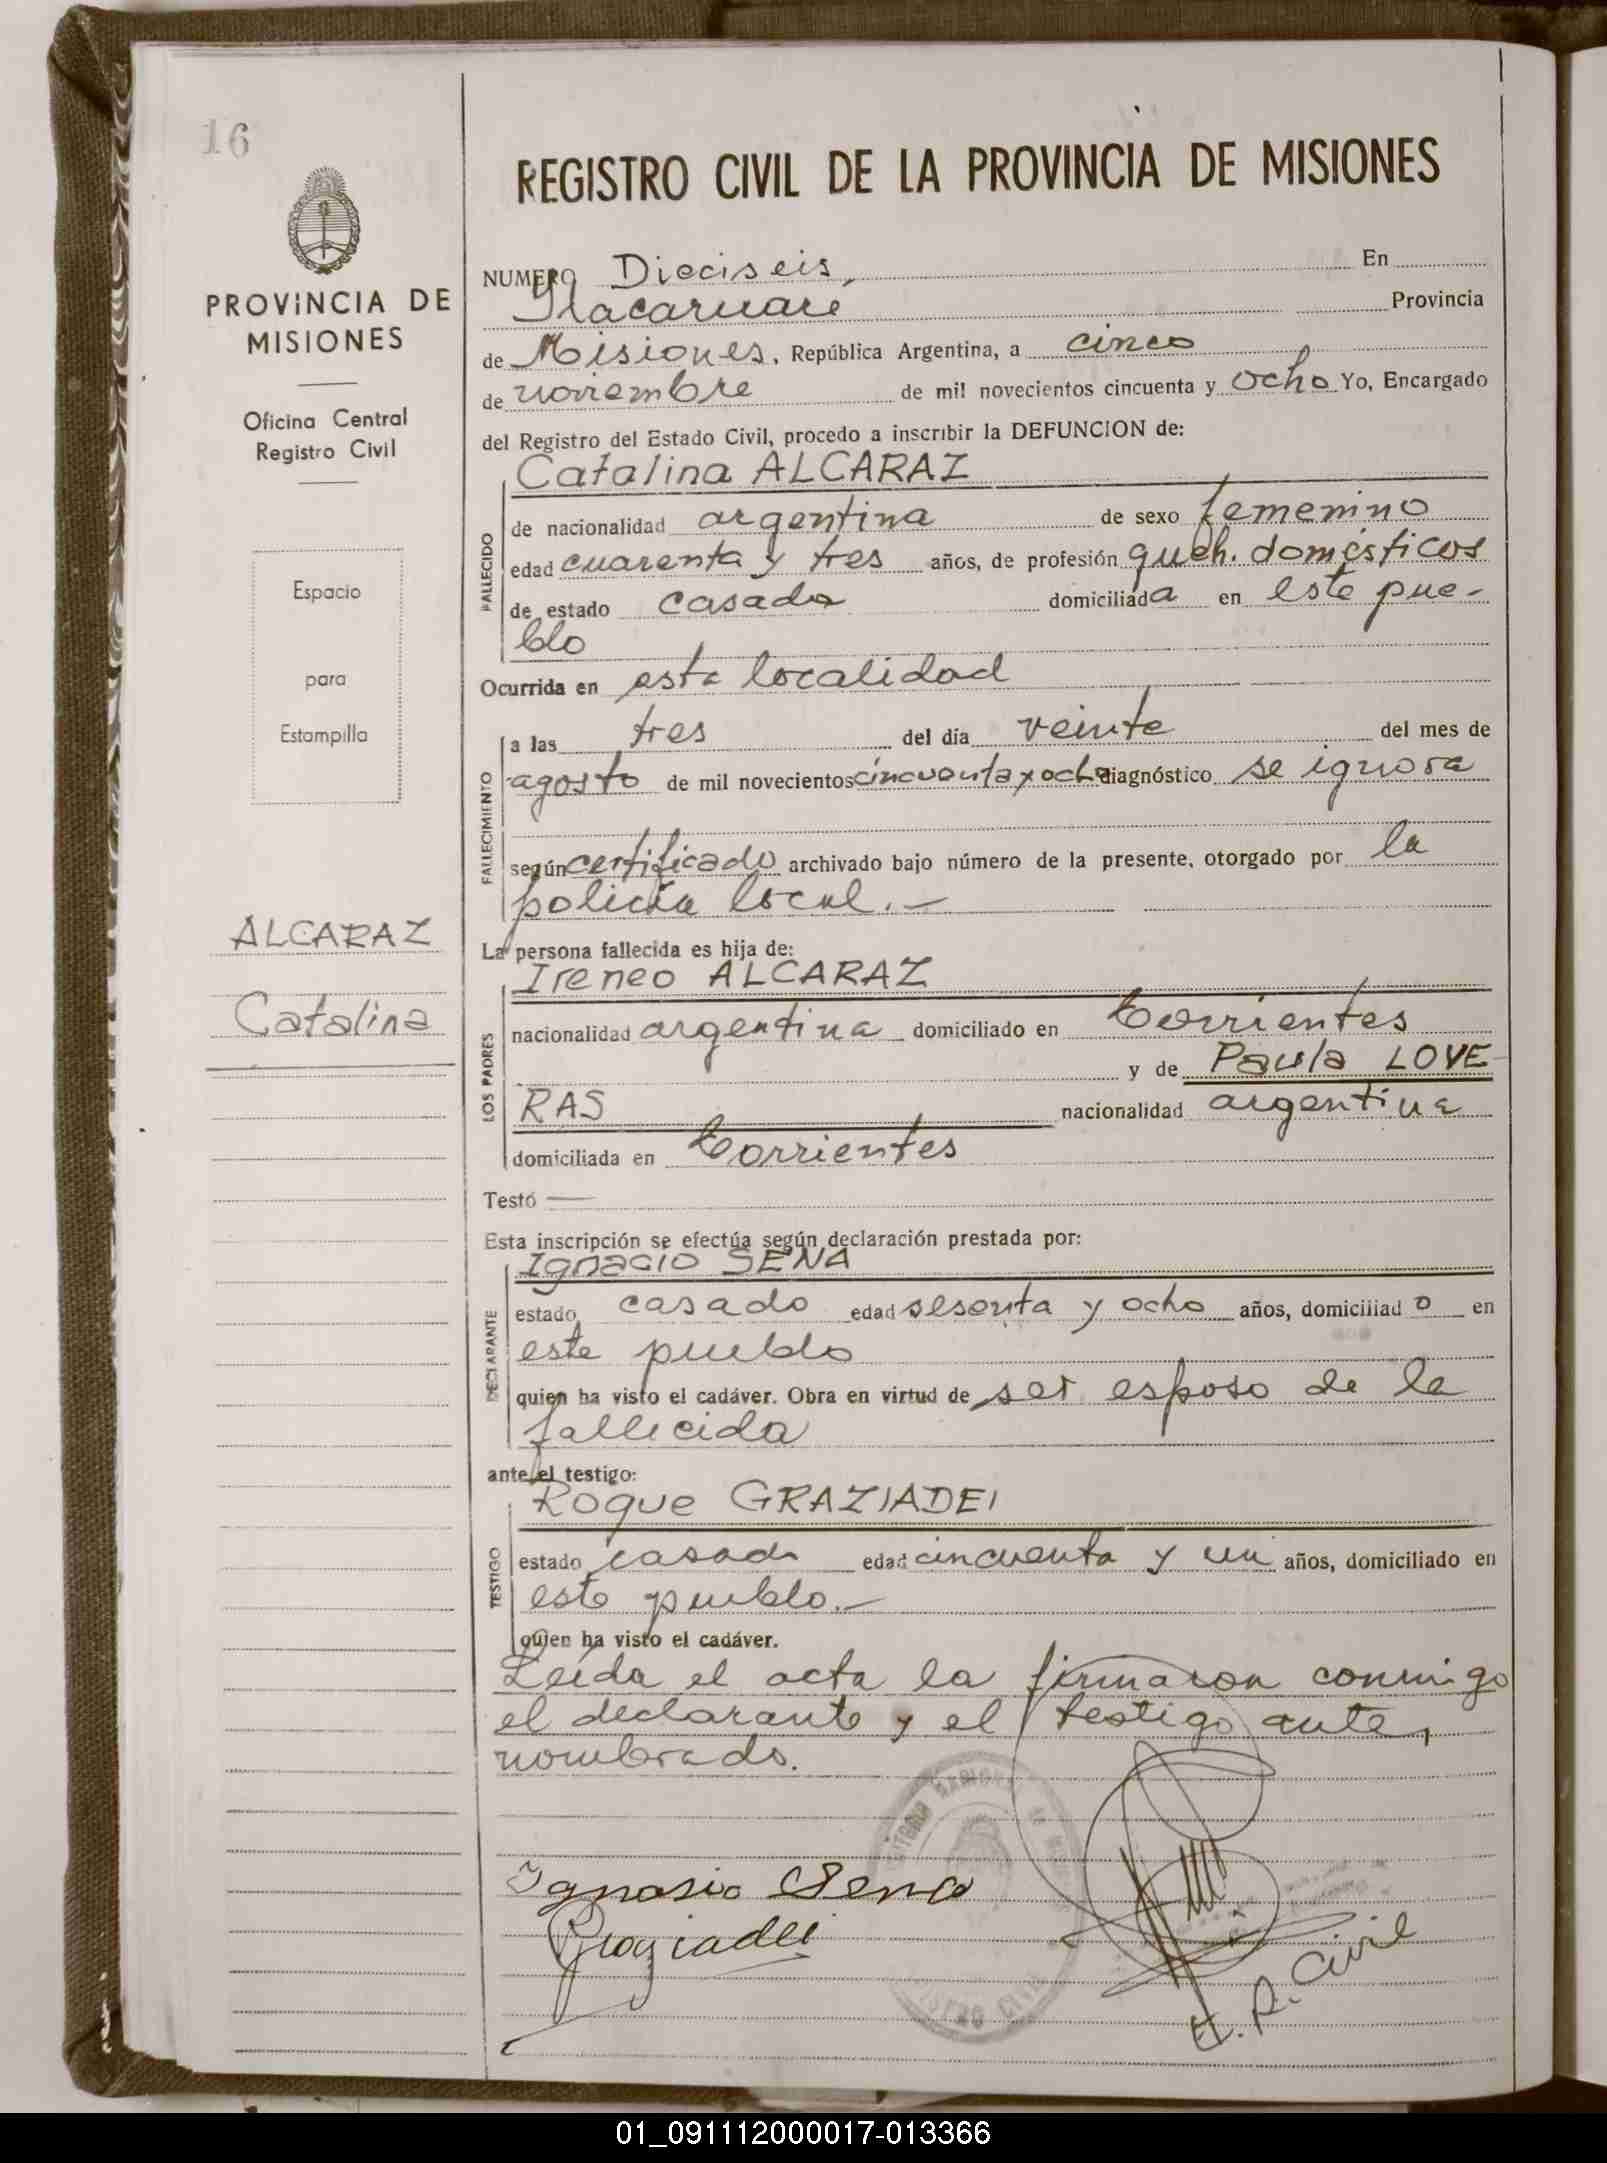 16
PROVINCIA DE
MISIONES
Oficina Central
Registro Civil
Espacio
para
Estampilla
ALCARAZ
Catalina
REGISTRO CIVIL DE LA PROVINCIA DE MISIONES
NUMERO Dieciseis, En
Itacaruare Provincia
de Misiones, República Argentina, a cinco
de noviembre de mil novecientos cincuenta y ocho Yo, Encargado
del Registro del Estado Civil, procedo a inscribir la DEFUNCION de:
Catalina ALCARAZ
FALLECIDO
de nacionalidad argentina de sexo femenino
edad cuarenta y tres años, de profesión queh. domésticos
de estado casada domiciliada en este pue-
blo
Ocurrida en esta localidad
FALLECIMIENTO
a las tres del día veinte del mes de
agosto de mil novecientos cincuenta y ocho diagnóstico se ignora
según certificado archivado bajo número de la presente, otorgado por la
policía local.-
La persona fallecida es hija de:
Ireneo ALCARAZ
LOS PADRES
nacionalidad argentina domiciliado en Corrientes
y de Paula LOVE
RAS nacionalidad argentina
domiciliada en Corrientes
Testó —
Esta inscripción se efectúa según declaración prestada por:
Ignacio SENA
DECLARANTE
estado casado edad sesenta y ocho años, domiciliado en
este pueblo
quien ha visto el cadáver. Obra en virtud de ser esposo de la
fallecida
ante el testigo:
Roque GRAZIADEI
TESTIGO
estado casado edad cincuenta y un años, domiciliado en
este pueblo.-
quien ha visto el cadáver.
Leída el acta la firmaron conmigo
el declarante y el testigo ante,
nombrado.
Ignasio Sena
Graziadei
REGISTRO CIVIL
E. R. Civil
01_091112000017-013366